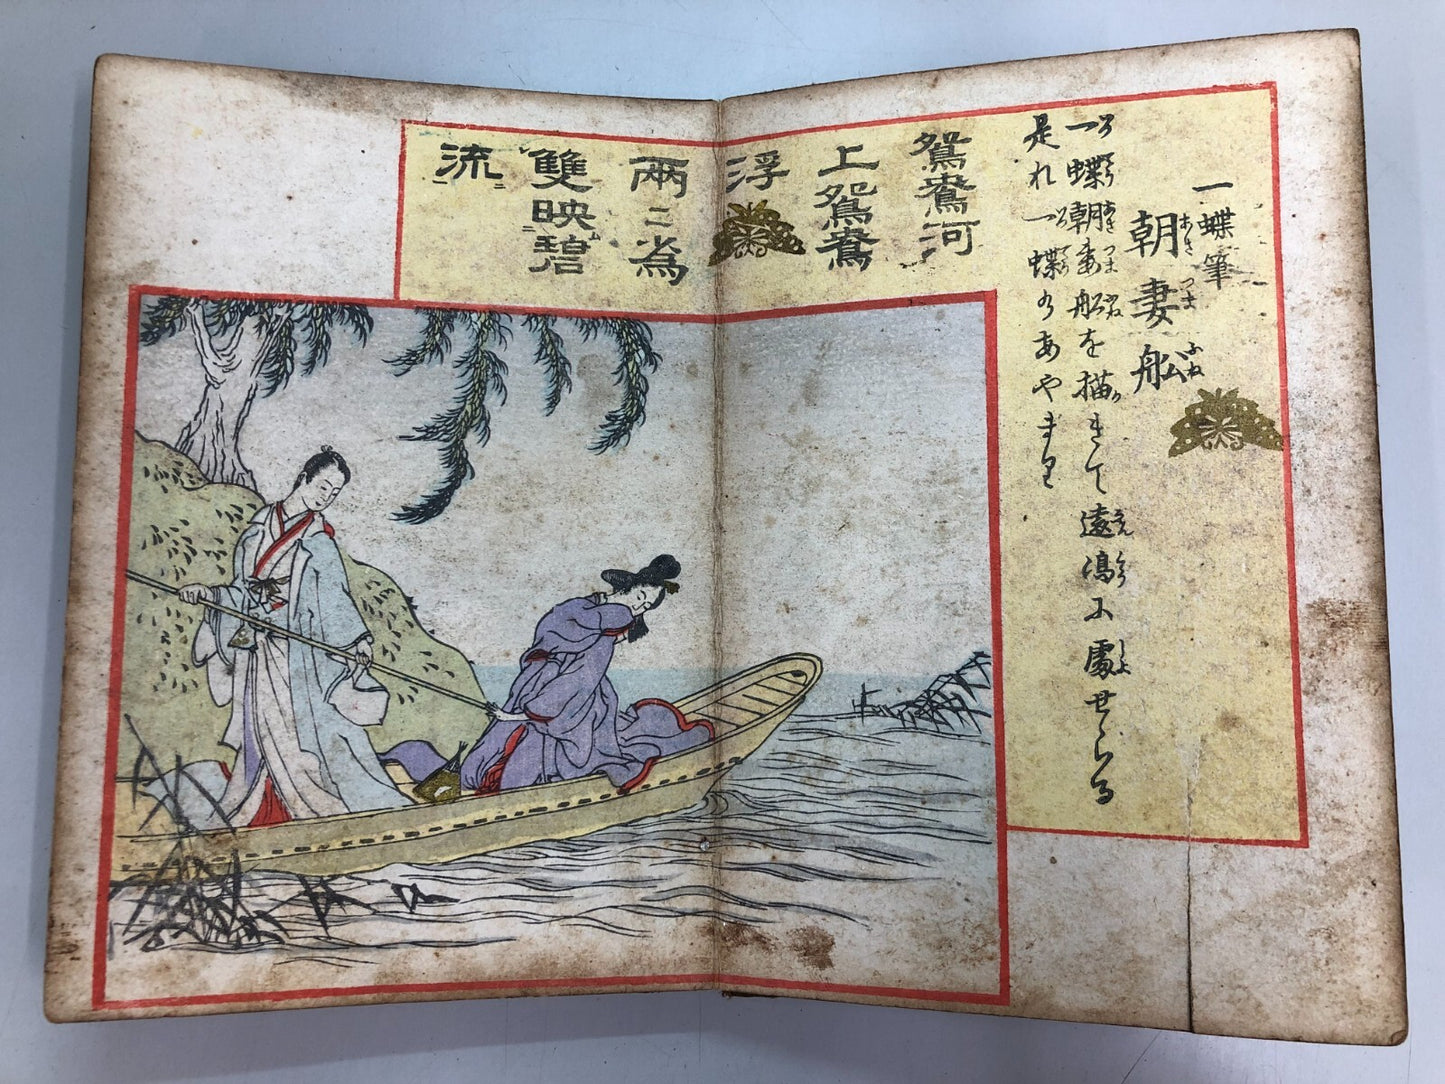 一蝶筆
朝妻舩
あさ つま ふね
一蝶朝妻舩を描きて遠嶋に處せらる
是れ一蝶のあやまり
鴛鴦河
上鴛鴦
浮
兩二為
雙映碧
流